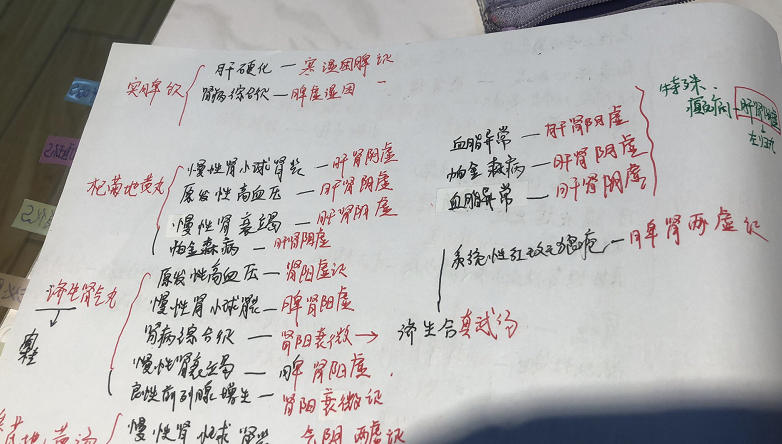 实脾饮
肝硬化 — 寒湿困脾证
肾病综合征 — 脾虚湿困
杞菊地黄丸
慢性肾小球肾炎 — 肝肾阴虚
原发性高血压 — 肝肾阴虚
慢性肾衰竭 — 肝肾阴虚
帕金森病 — 肝肾阴虚
血脂异常 — 肝肾阴虚
帕金森病 — 肝肾阴虚
血脂异常 — 肝肾阴虚
特殊:
癫痫 — 肝肾阴虚
左归丸
系统性红斑狼疮 — 脾肾两虚证
济生肾气丸
原发性高血压 — 肾阳虚证
慢性肾小球肾炎 — 脾肾阳虚
肾病综合征 — 肾阳衰微 → 济生合真武汤
慢性肾衰竭 — 脾肾阳虚
良性前列腺增生 — 肾阳衰微证
地黄汤
慢性肾小球肾炎 气阴两虚证